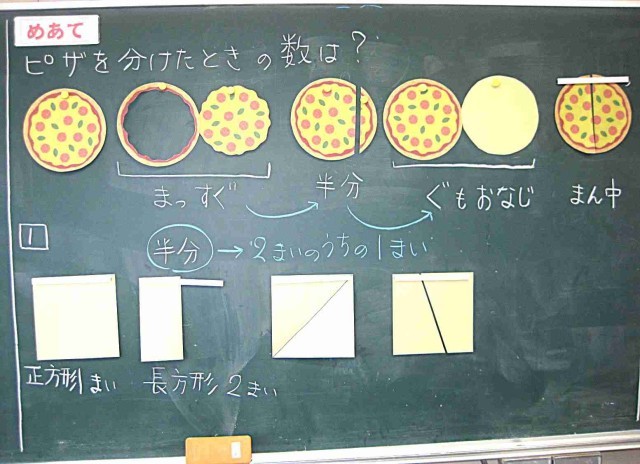 めあて
ピザを分けたときの数は?
まっすぐ
半分
ぐもおなじ
まん中
1
半分→2まいのうちの1まい
正方形1まい
長方形2まい